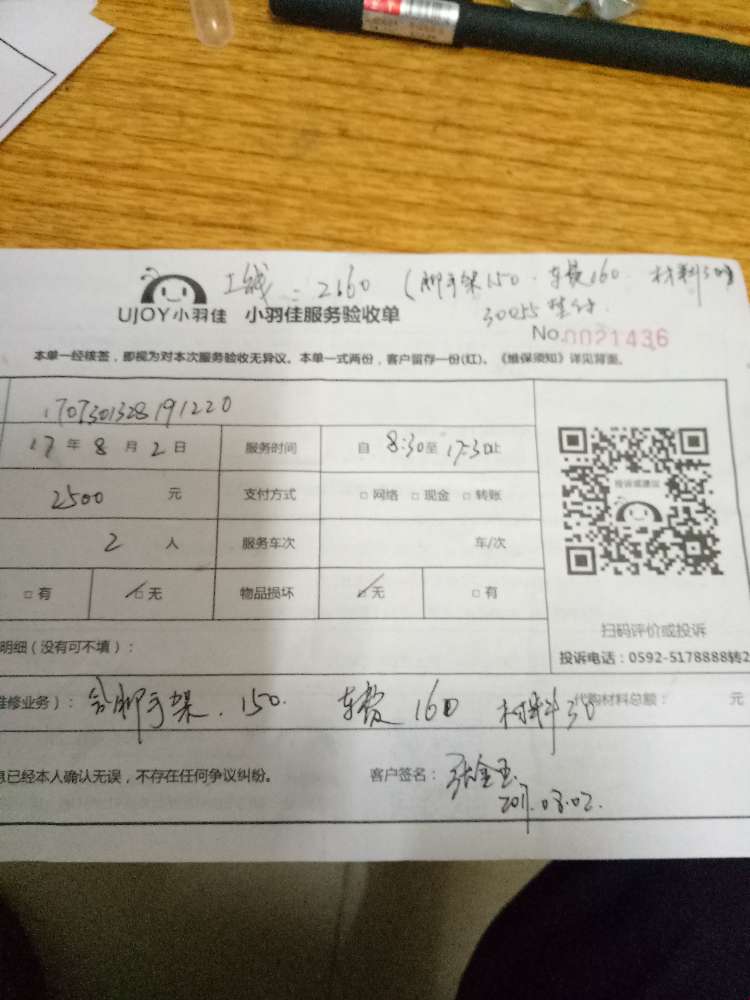 2660 (脚手架150. 车费160. 材料30
UJOY小羽佳 小羽佳服务验收单
30055
No.0021436
本单一经核签,即视为对本次服务验收无异议。本单一式两份,客户留存一份(红)。《维保须知》详见背面。
1707301328191220
17年8月2日 服务时间 自 8:30至 17:30止
2500 元 支付方式 □网络 □现金 □转账
投诉或建议
2 人 服务车次 车/次
□有 □无 物品损坏 □无 □有
扫码评价或投诉
明细(没有可不填):
投诉电话:0592-5178888转2
维修业务): 含脚手架. 150. 车费 160 材料30 代购材料总额: 元
息已经本人确认无误,不存在任何争议纠纷。 客户签名: 张金玉
2017.08.02.